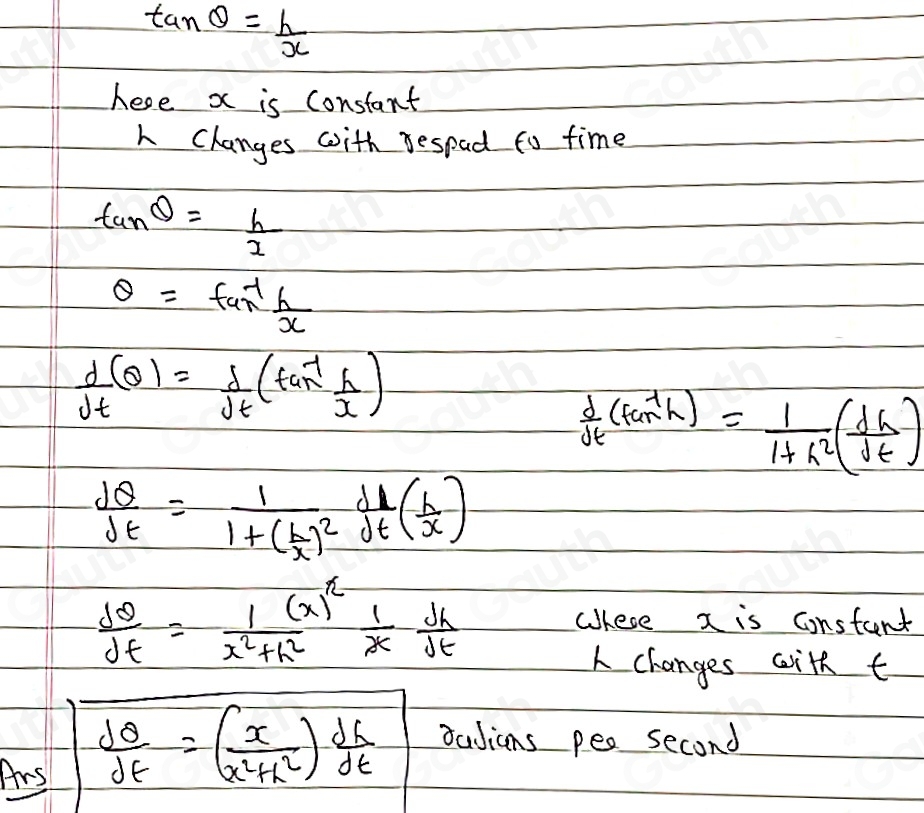 tan θ = h/x
here x is constant
h changes with respad to time
tan θ = h/x
θ = tan⁻¹ h/x
d/dt (θ) = d/dt (tan⁻¹ h/x)
d/dt (tan⁻¹ h) = 1/(1+h²) (dh/dt)
dθ/dt = 1/(1+(h/x)²) d/dt (h/x)
dθ/dt = 1 (x)²/(x²+h²) 1/x dh/dt where x is constant
h changes with t
Ans dθ/dt = (x/(x²+h²)) dh/dt radians per second
Gauth